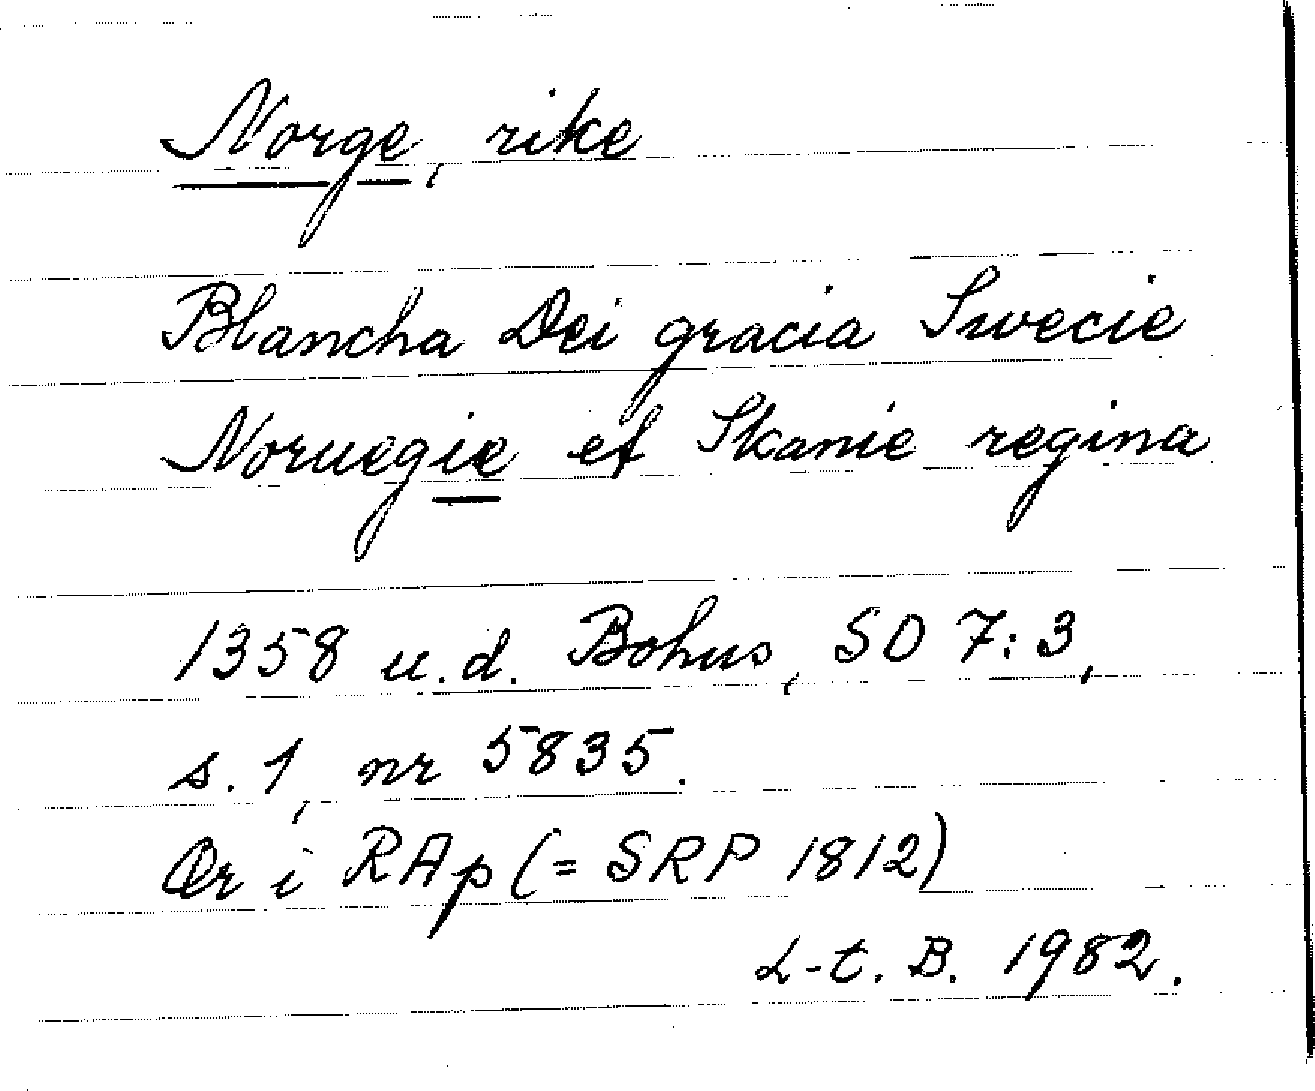 Norge, rike
Blancha Dei gracia Swecie
Noruegie et Skanie regina
1358 u.d. Bohus, SD 7:3,
s. 1, nr 5835.
Or i RAp (= SRP 1812)
L-t. B. 1982.